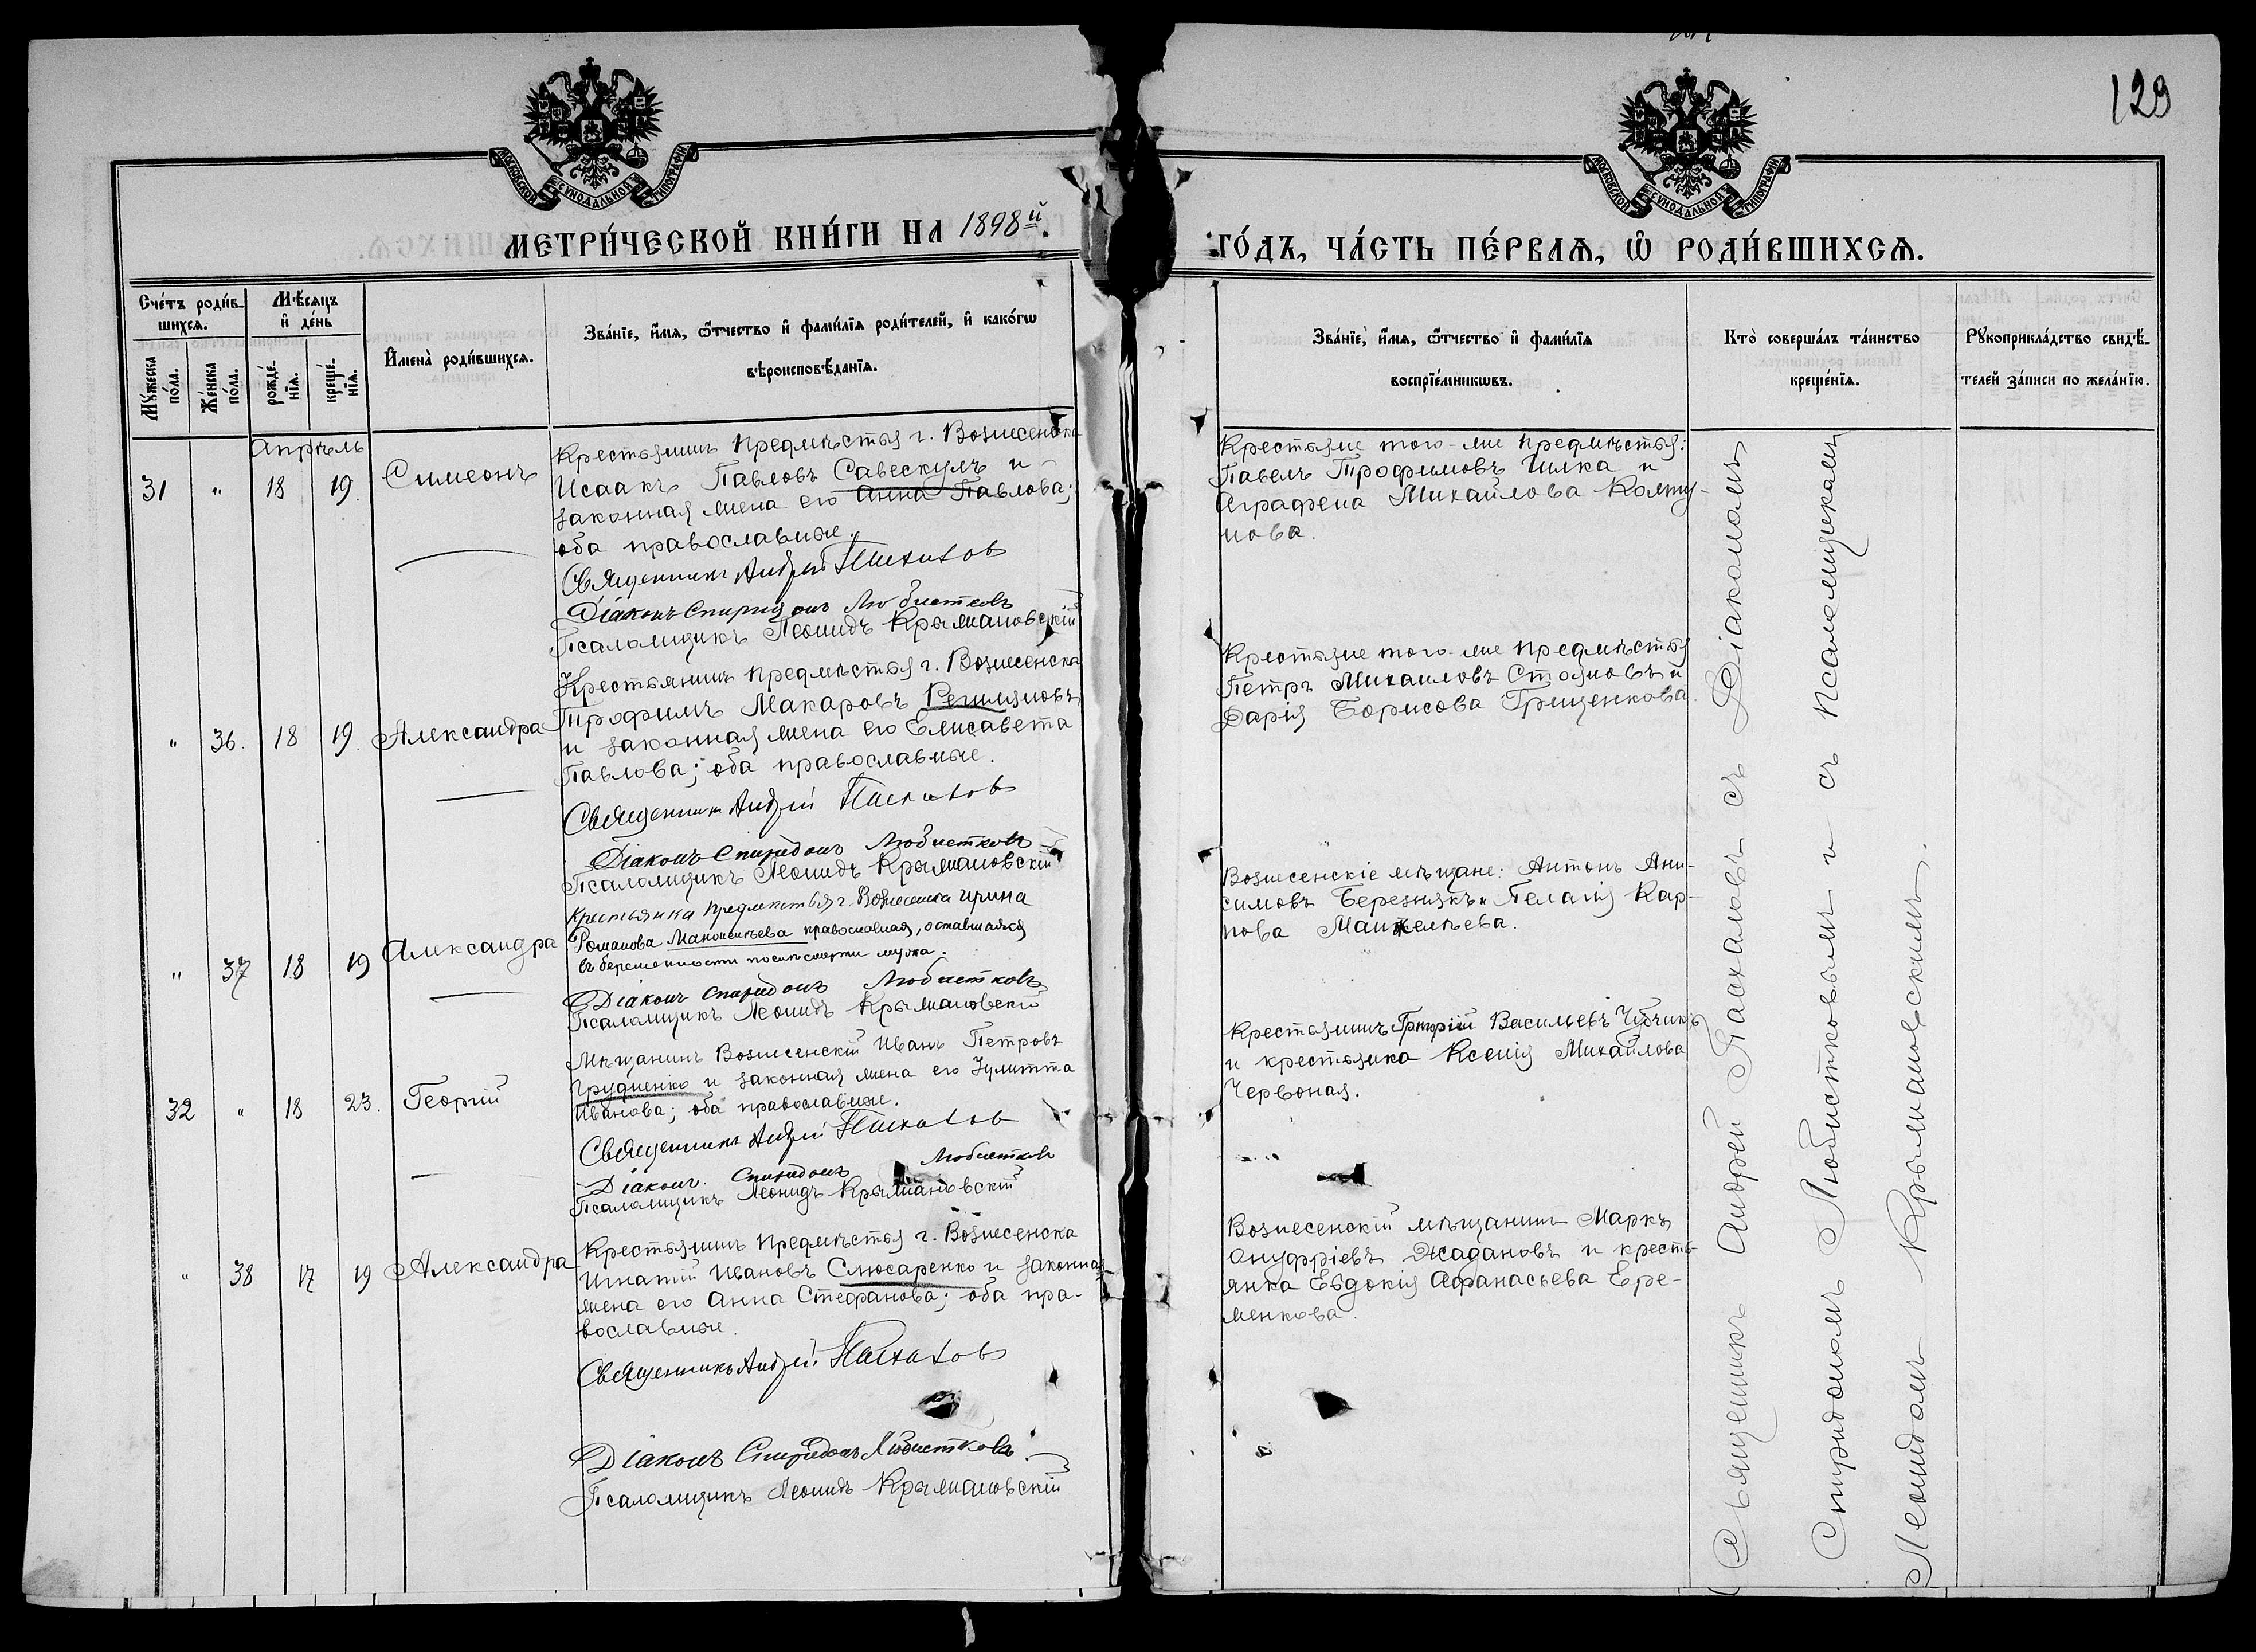 129
МОСКОВСКОЙ СУНОДАЛЬНОЙ ТИПОГРАФІИ
МОСКОВСКОЙ СУНОДАЛЬНОЙ ТИПОГРАФІИ
МЕТРИ́ЧЕСКОЙ КНИ́ГИ НА 1898й.
ГО́ДЪ, ЧА́СТЬ ПЕ́РВАѦ, Ѡ РОДИ́ВШИХСѦ.
Сче́тъ роди́в-
шихсѧ.
Мѣ́сѧцъ
и҆ де́нь
Мꙋ́жеска по́ла.
Же́нска по́ла.
рожде́-нїѧ.
креще́-нїѧ.
И҆мена̀ роди́вшихсѧ.
Зва́нїе, и҆́мѧ, ѻ҆́тчество и҆ фами́лїѧ роди́телей, и҆ како́гѡ
вѣроисповѣ́данїѧ.
Зва́нїе, и҆́мѧ, ѻ҆́тчество и҆ фами́лїѧ
воспрїе́мникѡвъ.
Кто̀ соверша́лъ та́инство
креще́нїѧ.
Рꙋкоприкла́дство свидѣ́-
телей за́писи по жела́нїю.
Апрѣль
31 " 18 19. Симеонъ
Крестьянинъ предмѣстья г. Вознесенска
Исаакъ Павловъ Савескулъ и
законная жена его Анна Павлова;
оба православные.
Священникъ Андрей Пасхаловъ
Діаконъ Спиридонъ Любистковъ
Псаломщикъ Леонидъ Крыжановскій
Крестьяне того-же предмѣстья:
Павелъ Трофимовъ Цилка и
Аграфена Михайлова Колту-
нова.
" 36. 18 19. Александра
Крестьянинъ предмѣстья г. Вознесенска
Трофимъ Макаровъ
и законная жена его Елисавета
Павлова; оба православные.
Священникъ Андрей Пасхаловъ
Діаконъ Спиридонъ Любистковъ
Псаломщикъ Леонидъ Крыжановскій
Крестьяне того-же предмѣстья
Петръ Михаиловъ Стояновъ и
Дарія Борисова Грищенкова.
" 37 18 19 Александра
Крестьянка предмѣстья г. Вознесенска Ирина
Романова православная, оставшаяся
въ беременности послѣ смерти мужа.
Діаконъ Спиридонъ Любистковъ
Псаломщикъ Леонидъ Крыжановскій
Вознесенскіе мѣщане: Антонъ Ани-
симовъ Березнякъ и Пелагія Кар-
пова
32 " 18 23. Георгій
Мѣщанинъ Вознесенскій Иванъ Петровъ
Грудненко и законная жена его Іулитта
Иванова; оба православные.
Священникъ Андрей Пасхаловъ
Діаконъ Спиридонъ Любистковъ
Псаломщикъ Леонидъ Крыжановскій
Крестьянинъ Григорій Васильевъ Чубчикъ
и крестьянка Ксенія Михайлова
Червоная.
" 38 17 19 Александра
Крестьянинъ предмѣстья г. Вознесенска
Игнатій Ивановъ Слюсаренко и законная
жена его Анна Стефанова; оба пра-
вославные.
Священникъ Андрей Пасхаловъ
Діаконъ Спиридонъ Любистковъ
Псаломщикъ Леонидъ Крыжановскій
Вознесенскій мѣщанинъ Маркъ
Онуфріевъ Жадановъ и кресть-
янка Евдокія Афанасьева Ере-
менкова.
Священникъ Андрей Пасхаловъ съ Діакономъ
Спиридономъ Любистковымъ и съ Псаломщикомъ
Леонидомъ Крыжановскимъ.